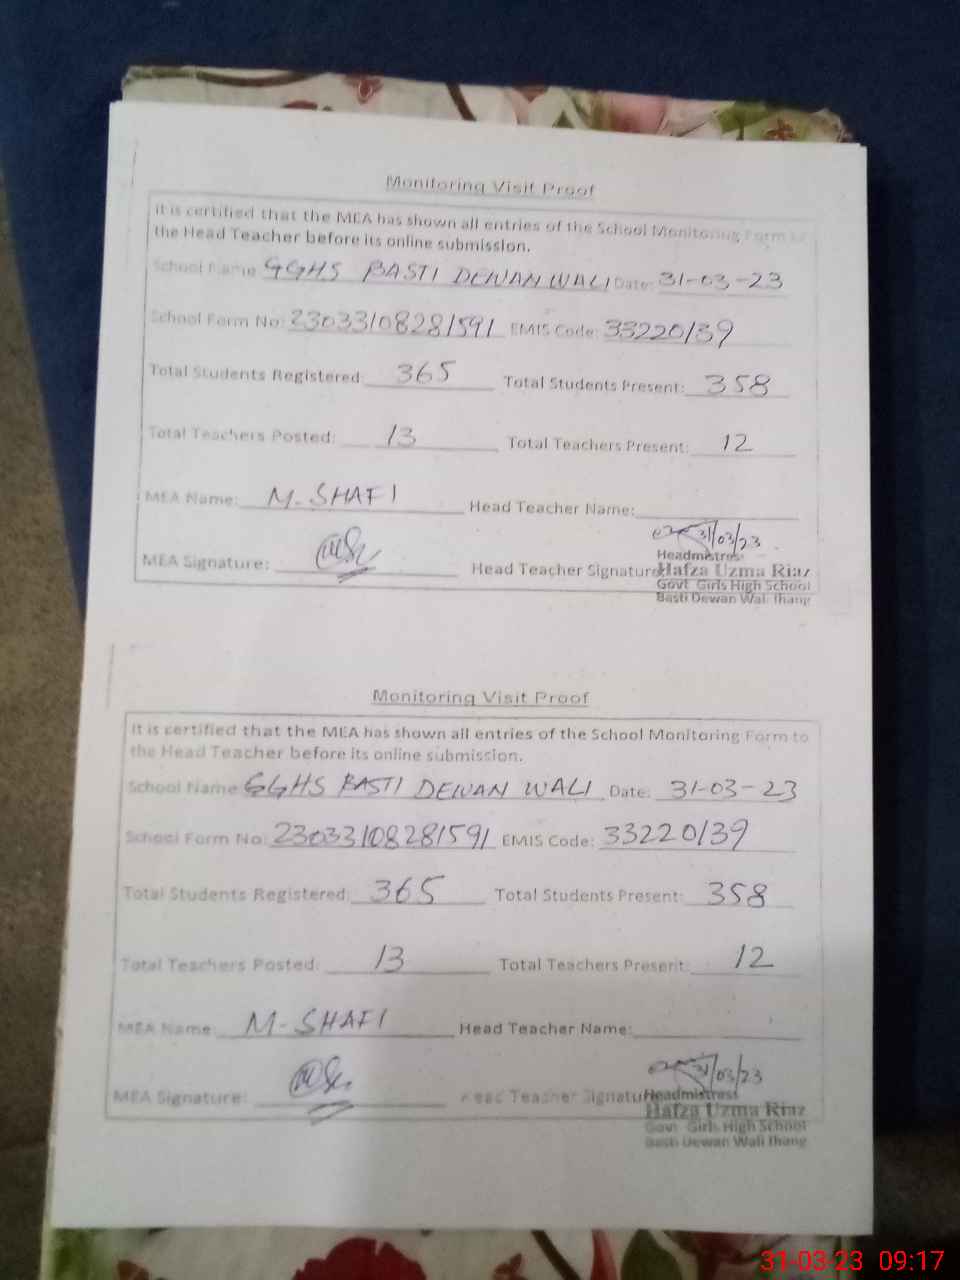 Monitoring Visit Proof
It is certified that the MEA has shown all entries of the School Monitoring Form to
the Head Teacher before its online submission.
School Name GGHS BASTI DEWAN WALI Date: 31-03-23
School Form No: 23033108281591 EMIS Code: 33220139
Total Students Registered: 365 Total Students Present: 358
Total Teachers Posted: 13 Total Teachers Present: 12
MEA Name: M. SHAFI Head Teacher Name:
31/03/23
Headmistress
MEA Signature: Head Teacher Signature Hafza Uzma Riaz
Govt Girls High School
Basti Dewan Wali Jhang
Monitoring Visit Proof
It is certified that the MEA has shown all entries of the School Monitoring Form to
the Head Teacher before its online submission.
School Name GGHS BASTI DEWAN WALI Date: 31-03-23
School Form No: 23033108281591 EMIS Code: 33220139
Total Students Registered: 365 Total Students Present: 358
Total Teachers Posted: 13 Total Teachers Present: 12
MEA Name: M- SHAFI Head Teacher Name:
31/03/23
MEA Signature: Head Teacher Signatu Headmistress
Hafza Uzma Riaz
Govt Girls High School
Basti Dewan Wali Jhang
31-03-23 09:17